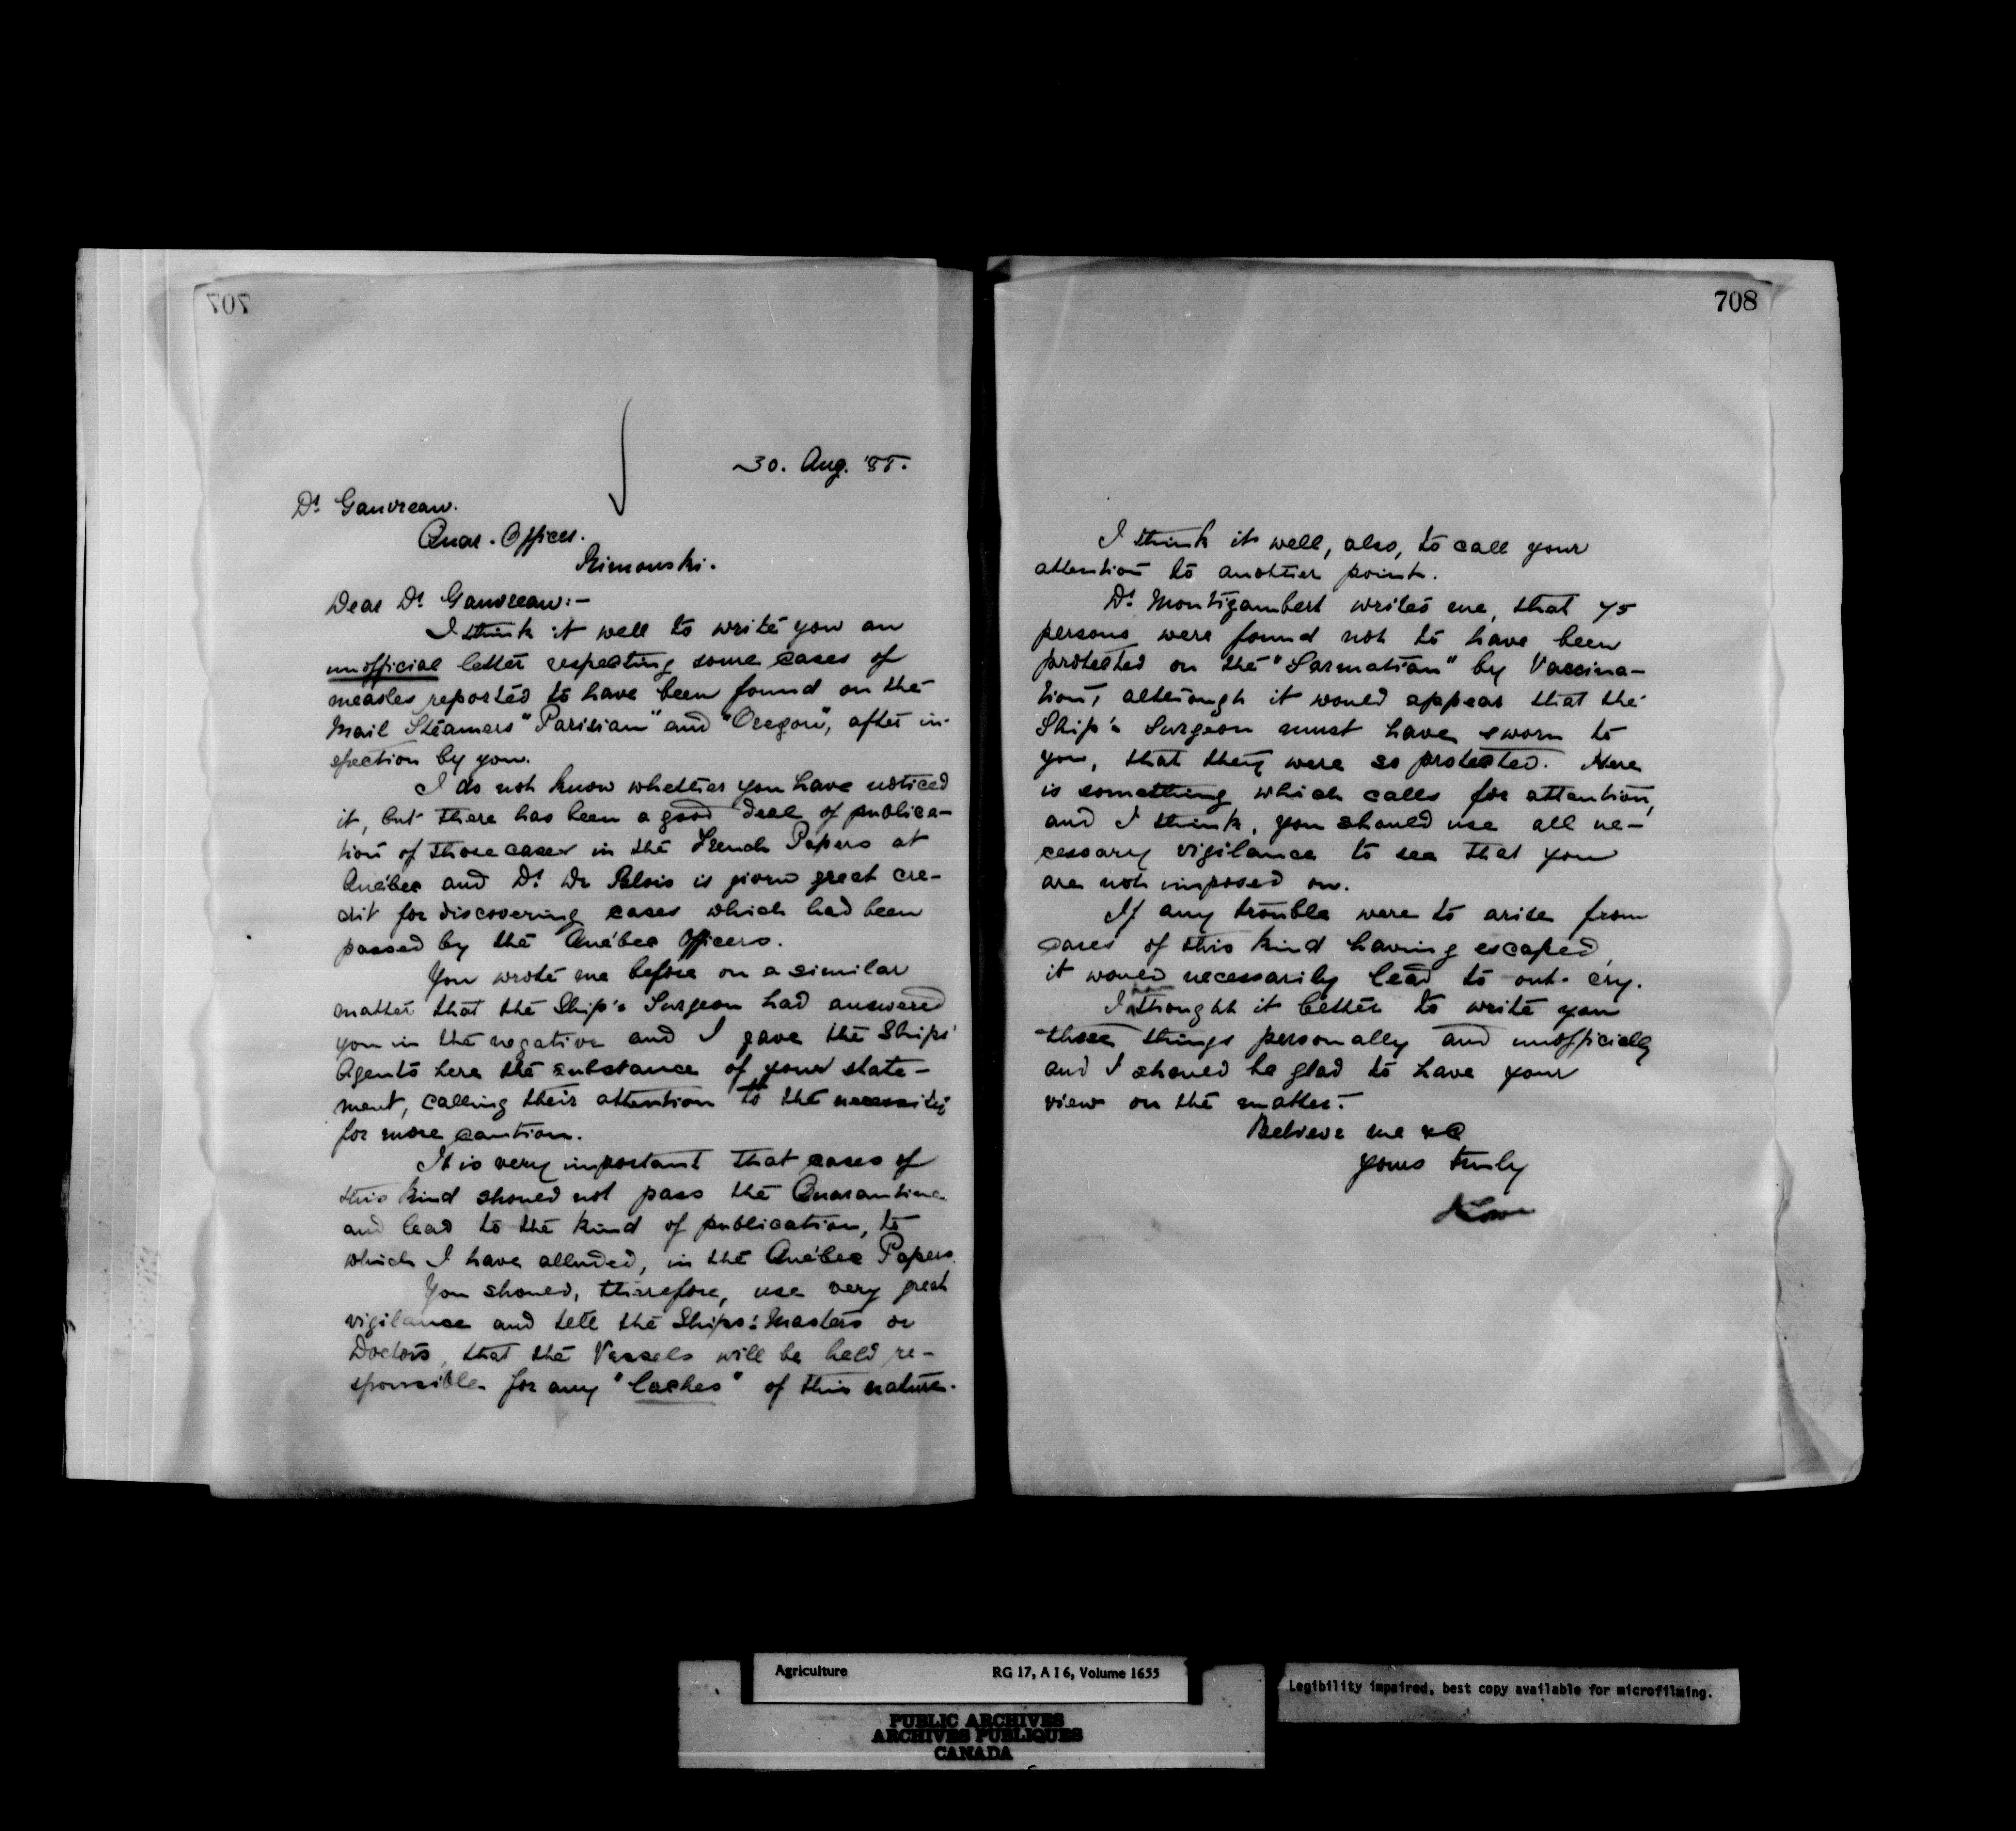 707
30. Aug. '85.
Dr Gauvreau.
Quar. Officer.
Rimouski.
Dear Dr Gauvreau:—
I think it well to write you an
unofficial letter respecting some cases of
measles reported to have been found on the
Mail Steamers "Parisian" and "Oregon", after in-
spection by you.
I do not know whether you have noticed
it, but there has been a good deal of publica-
tion of those cases in the French Papers at
Québec and Dr De Salois is given great cre-
dit for discovering cases which had been
passed by the Québec Officers.
You wrote me before on a similar
matter that the Ship's Surgeon had answered
you in the negative and I gave the Ships'
Agents here the substance of your state-
ment, calling their attention to the necessity
for more caution.
It is very important that cases of
this kind should not pass the Quarantine
and lead to the kind of publication, to
which I have alluded, in the Québec Papers.
You should, therefore, use very great
vigilance and tell the Ships' Masters or
Doctors, that the Vessels will be held re-
sponsible for any "laches" of this nature.
708
I think it well, also, to call your
attention to another point.
Dr Montizambert writes me, that 75
persons were found not to have been
protected on the "Sarmatian" by Vaccina-
tion, although it would appear that the
Ship's Surgeon must have sworn to
you, that they were so protected. Here
is something which calls for attention,
and I think, you should use all ne-
cessary vigilance to see that you
are not imposed on.
If any trouble were to arise from
cases of this kind having escaped,
it would necessarily lead to out-cry.
I thought it better to write you
these things personally and unofficially
and I should be glad to have your
view on the matter.
Believe me &c
Yours truly
Lowe
Agriculture RG 17, A I 6, Volume 1655
PUBLIC ARCHIVES
ARCHIVES PUBLIQUES
CANADA
Legibility impaired, best copy available for microfilming.